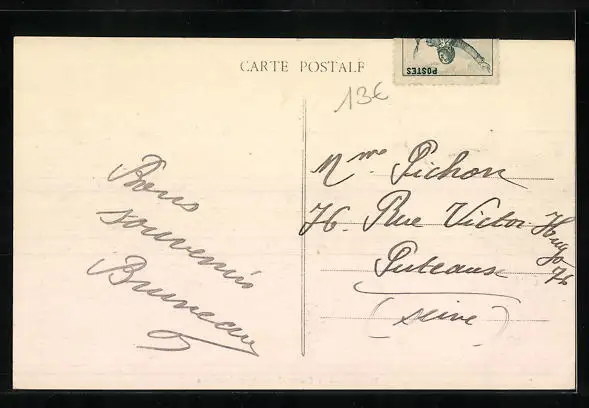 CARTE POSTALE
POSTES
13€
Bons
souvenirs
Bruneau
Mme Pichon
76. Rue Victor Hugo 76
Puteaux
(Seine)